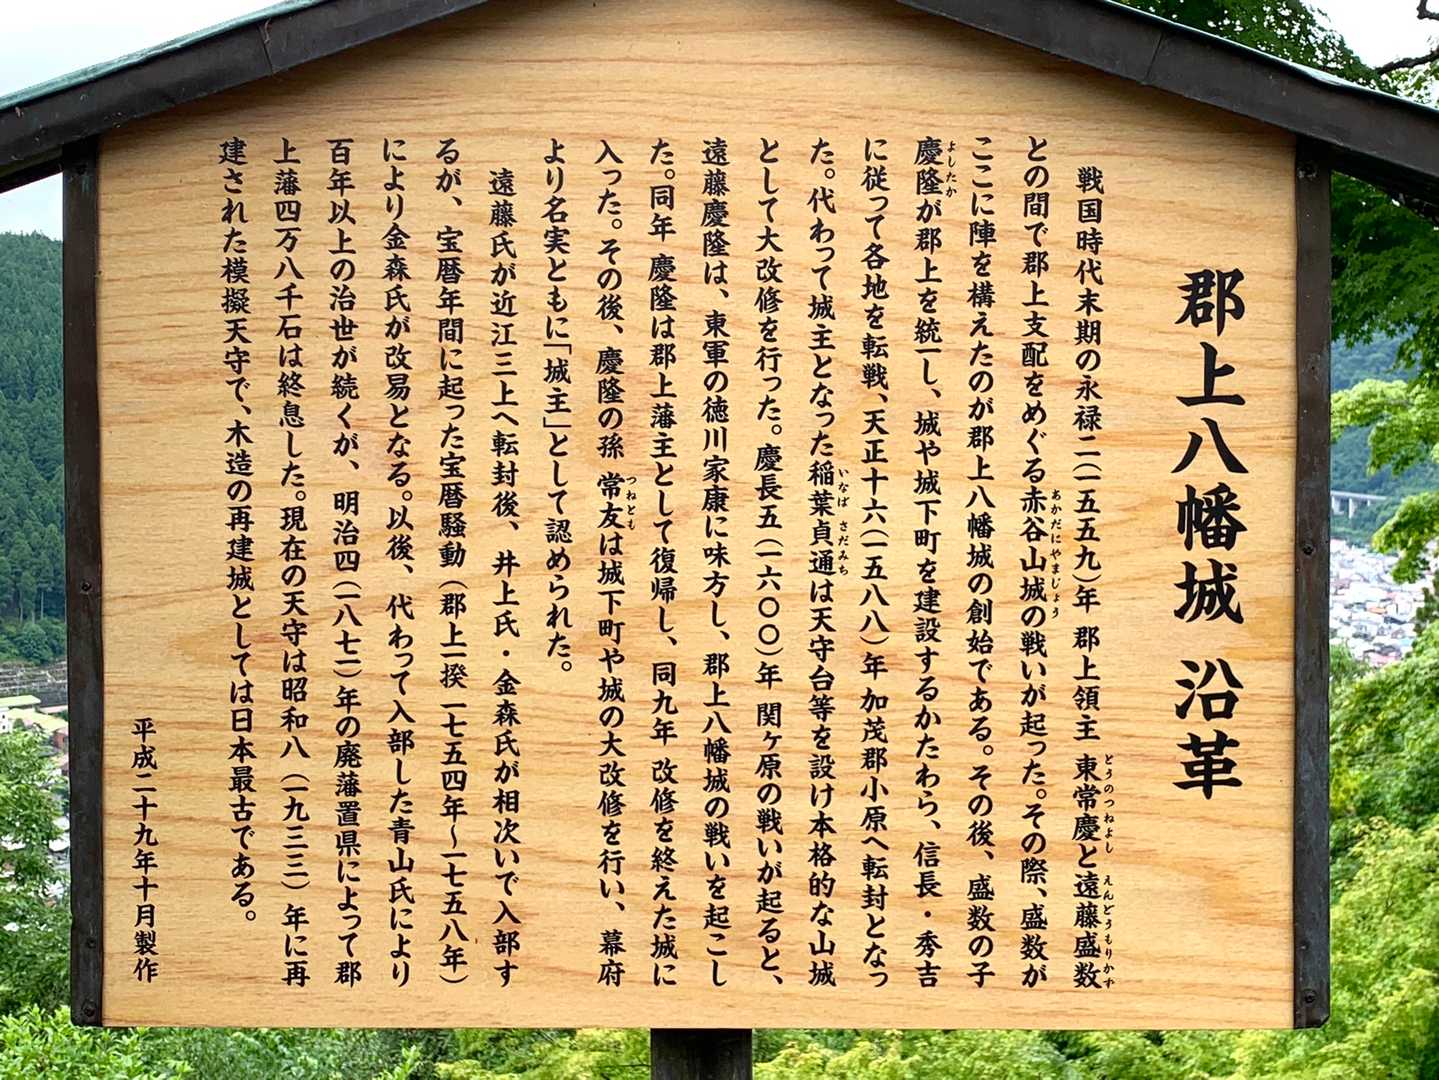 郡上八幡城 沿革
戦国時代末期の永禄二(一五五九)年 郡上領主 東常慶と遠藤盛数
とうのつねよし えんどうもりかず
との間で郡上支配をめぐる赤谷山城の戦いが起った。その際、盛数が
あかだにやまじょう
ここに陣を構えたのが郡上八幡城の創始である。その後、盛数の子
慶隆が郡上を統一し、城や城下町を建設するかたわら、信長・秀吉
よしたか
に従って各地を転戦、天正十六(一五八八)年 加茂郡小原へ転封となっ
た。代わって城主となった稲葉貞通は天守台等を設け本格的な山城
いなば さだみち
として大改修を行った。慶長五(一六〇〇)年 関ヶ原の戦いが起ると、
遠藤慶隆は、東軍の徳川家康に味方し、郡上八幡城の戦いを起こし
た。同年 慶隆は郡上藩主として復帰し、同九年 改修を終えた城に
入った。その後、慶隆の孫 常友は城下町や城の大改修を行い、幕府
つねとも
より名実ともに「城主」として認められた。
遠藤氏が近江三上へ転封後、井上氏・金森氏が相次いで入部す
るが、宝暦年間に起った宝暦騒動(郡上一揆 一七五四年〜一七五八年)
により金森氏が改易となる。以後、代わって入部した青山氏により
百年以上の治世が続くが、明治四(一八七一)年の廃藩置県によって郡
上藩四万八千石は終息した。現在の天守は昭和八(一九三三)年に再
建された模擬天守で、木造の再建城としては日本最古である。
平成二十九年十月製作